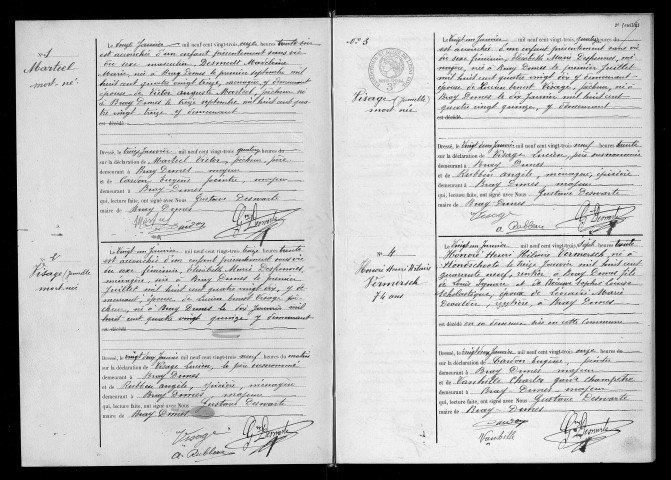 N° 1
Marteel
mort-né
Le treize Janvier mil neuf cent vingt-trois, onze heures trente
est accouchée d'un enfant présentement sans vie
du sexe masculin, Desmeest Madeleine
Marie, née à Bray Dunes le premier septembre mil
huit cent quatre vingt treize, ménagère, y demeurant
épouse de Victor Auguste Marteel, pêcheur, né
à Bray Dunes le treize septembre mil huit cent quatre
vingt treize, y demeurant
est décédé
Dressé, le treize Janvier mil neuf cent vingt-trois, quatorze heures du
sur la déclaration de Marteel Victor, pêcheur, père
demeurant à Bray Dunes majeur
et de Cardon Eugène peintre, majeur
demeurant à Bray Dunes
qui, lecture faite, ont signé avec Nous Gustave Deswarte
maire de Bray Dunes
2
Visage (jumelle)
mort-née
Le vingt un Janvier mil neuf cent vingt-trois, treize heures trente
est accouchée d'un enfant présentement sans vie
du sexe féminin, Elisabeth Marie Desponnes,
ménagère, née à Bray Dunes le premier
Juillet mil huit cent quatre vingt dix, y de-
meurant, épouse de Lucien Benoit Visage pê-
cheur, né à Bray Dunes le dix Janvier mil
huit cent quatre vingt quinze, y demeurant
est décédé
Dressé, le vingt deux Janvier mil neuf cent vingt-trois, neuf heures du matin
sur la déclaration de Visage Lucien, le père susnommé
demeurant à Bray Dunes
et de Rubben Angèle, épicière, ménagère
demeurant à Bray Dunes, majeure
qui, lecture faite, ont signé avec Nous Gustave Deswarte
maire de Bray Dunes
Visage
A Rubben
2e feuillet
N° 3
Visage (jumelle)
mort-née
Le vingt un Janvier mil neuf cent vingt-trois, quatorze heures
est accouchée d'un enfant présentement sans vie
du sexe féminin, Elisabeth Marie Desponnes, mé-
nagère, née à Bray Dunes le premier Juillet
mil huit cent quatre vingt dix y demeurant
épouse de Lucien Benoit Visage, pêcheur, né à
Bray Dunes le dix Janvier mil huit cent
quatre vingt quinze, y demeurant
est décédé
Dressé, le vingt deux Janvier mil neuf cent vingt-trois, neuf heures trente
sur la déclaration de Visage Lucien, père susnommé
demeurant à Bray Dunes
et de Rubben Angèle, ménagère, épicière
demeurant à Bray Dunes, majeure
qui, lecture faite, ont signé avec Nous Gustave Deswarte
maire de Bray Dunes
Visage
A Rubben
N° 4
Honoré Henri Hilaire
Vermersch
74 ans
Le vingt un Janvier mil neuf cent vingt-trois, sept heures trente
Honoré Henri Hilaire Vermersch, né à
Hondschoote le treize Janvier mil huit cent
quarante neuf, rentier à Bray Dunes fils
de Louis Ignace et de Sophie Louise
Scholastique, époux de Marie
à Bray Dunes
est décédé en sa demeure sise en cette commune
Dressé, le vingt deux Janvier mil neuf cent vingt-trois, onze heures du
sur la déclaration de Cardon Eugène, peintre
demeurant à Bray Dunes majeur
et de Vanhille Charles garde champêtre
demeurant à Bray Dunes majeur
qui, lecture faite, ont signé avec Nous Gustave Deswarte
maire de Bray-Dunes
Cardon
Vanhille